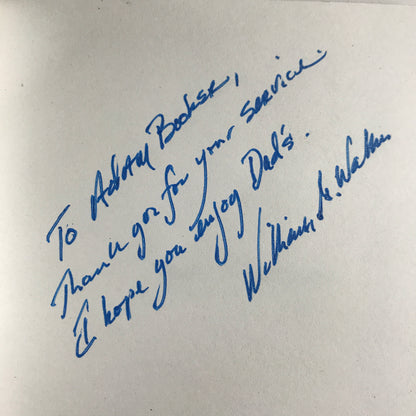 To Adam Booker,
Thank you for your service.
I hope you enjoy Dad's.
William G. Walker